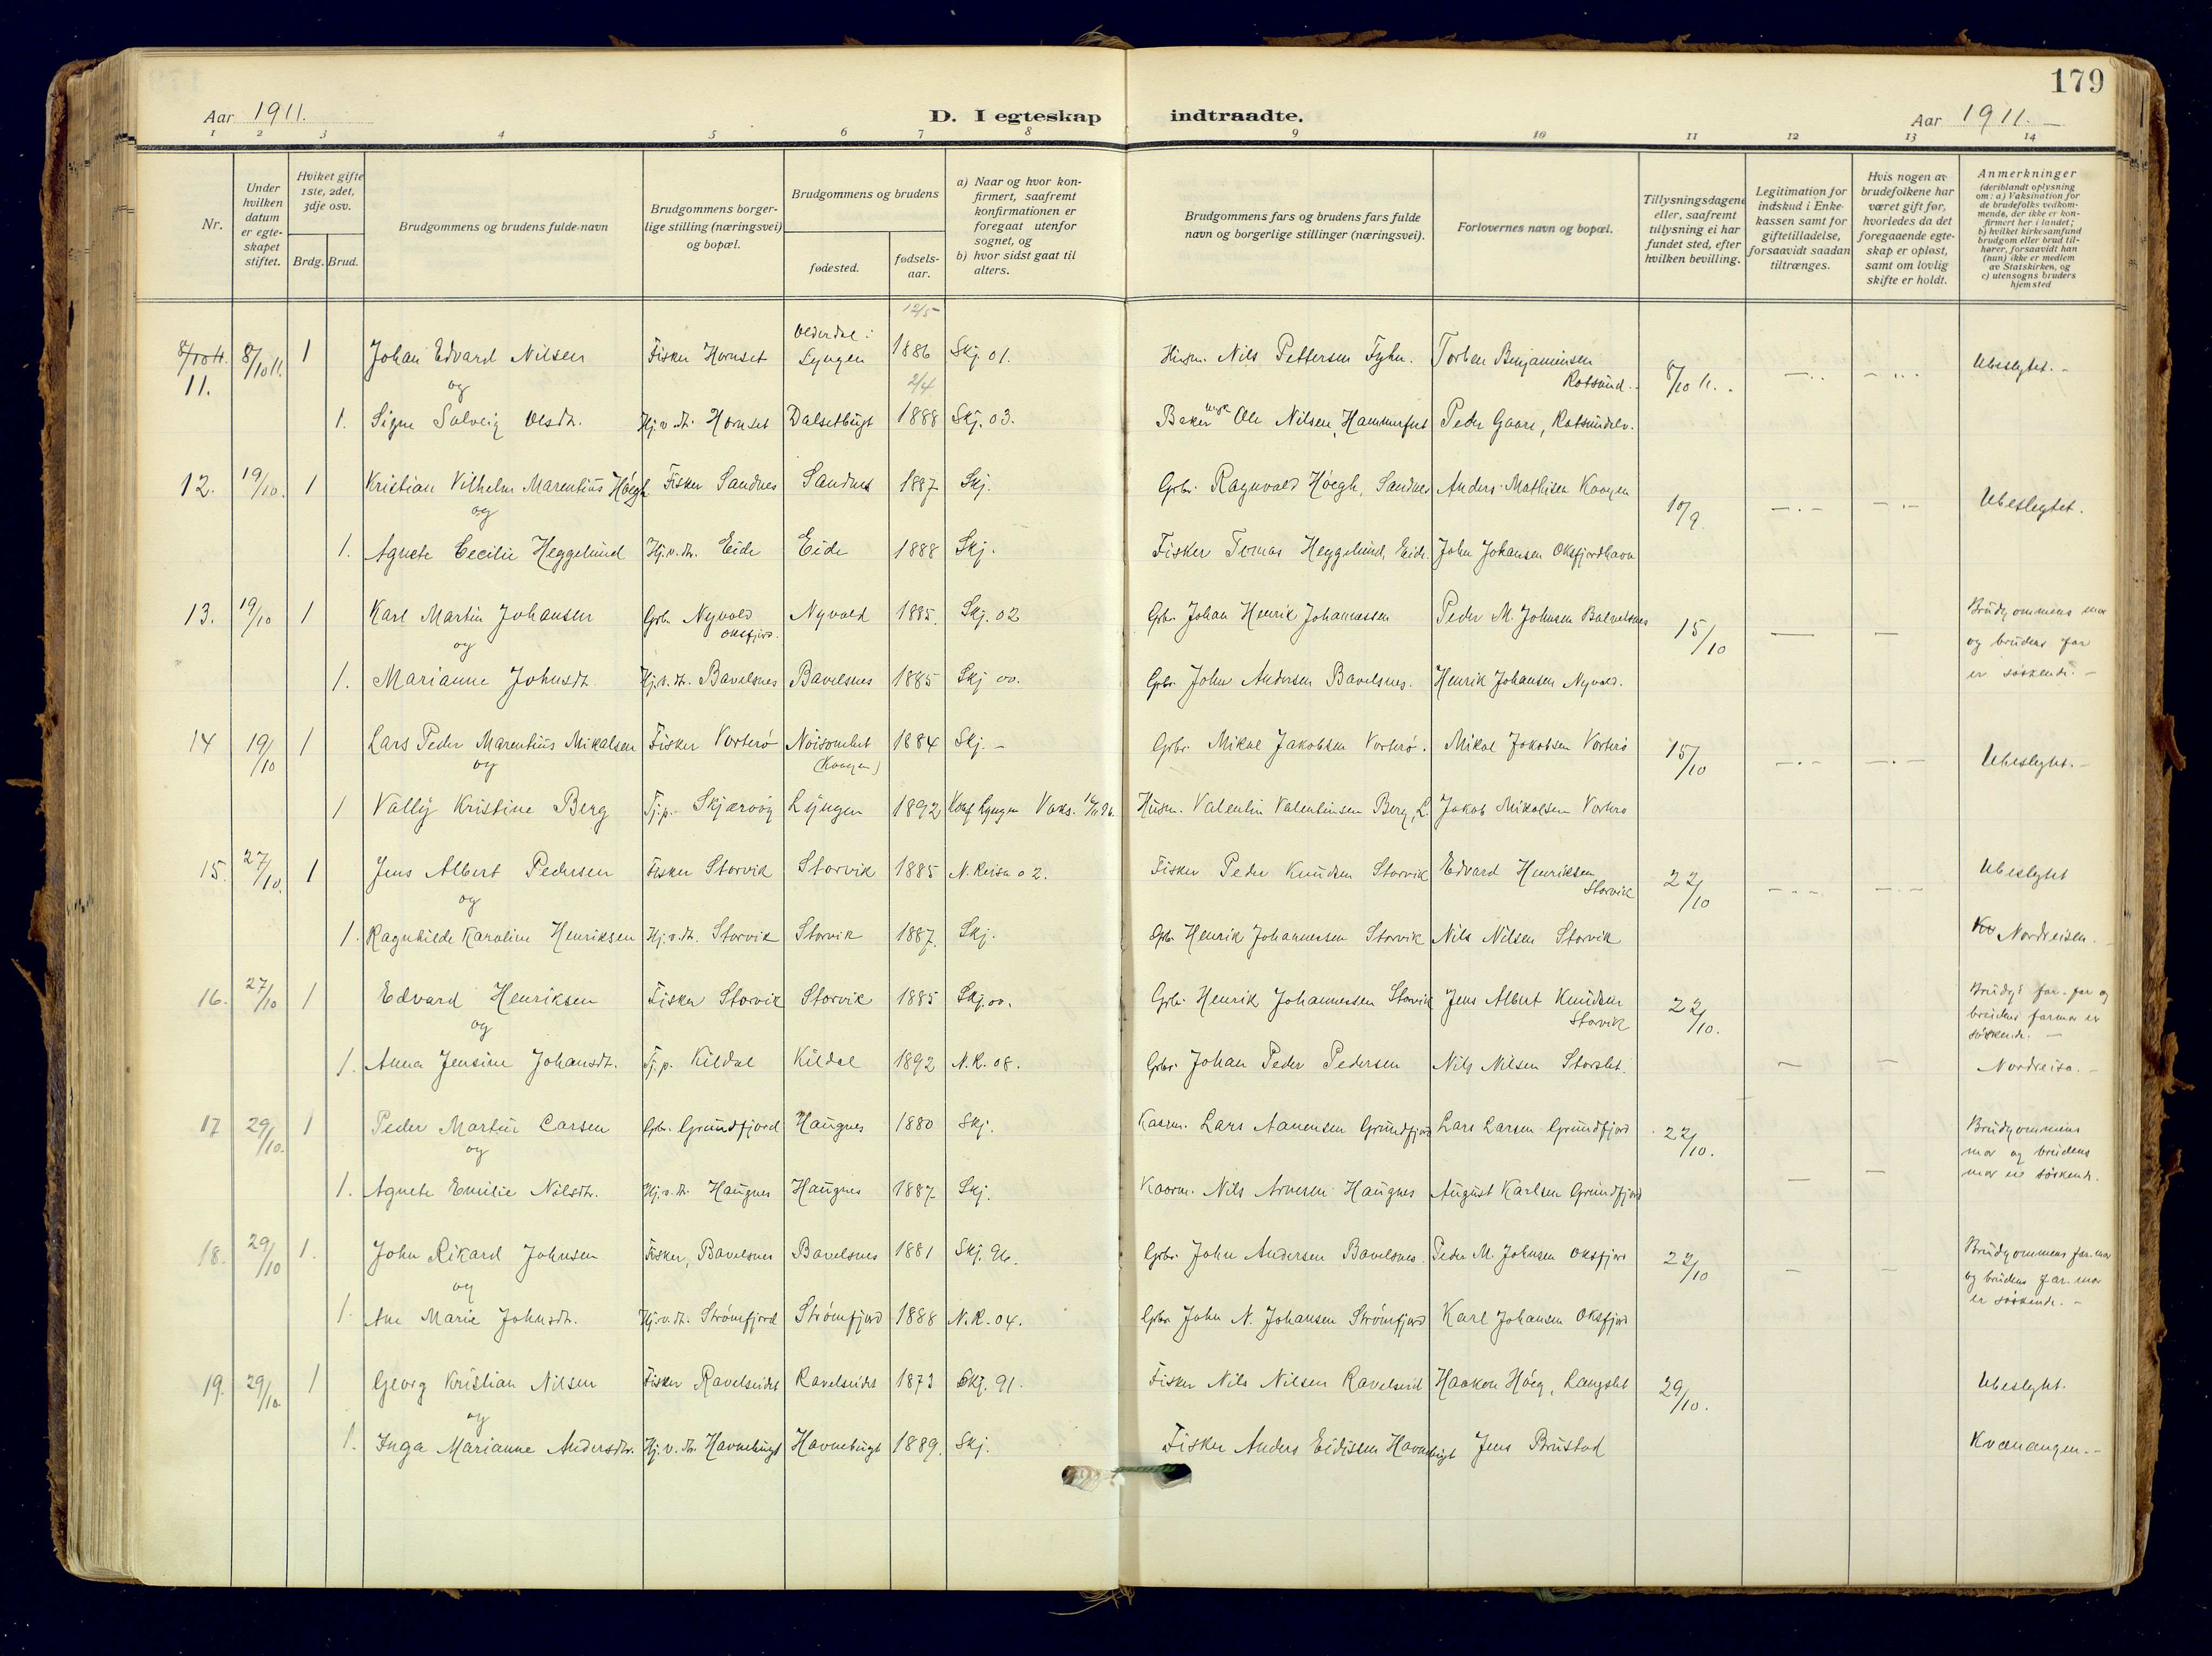 179
Aar 1911.
D. I egteskap indtraadte.
Aar 1911.
1 2 3 4 5 6 7 8 9 10 11 12 13 14
Nr.
Under hvilken datum er egte-skapet stiftet.
Hvilket gifte 1ste, 2det, 3dje osv.
Brdg. Brud.
Brudgommens og brudens fulde navn
Brudgommens borger-lige stilling (næringsvei) og bopæl.
Brudgommens og brudens
fødested.
fødsels-aar.
a) Naar og hvor kon-firmert, saafremt konfirmationen er foregaat utenfor sognet, og
b) hvor sidst gaat til alters.
Brudgommens fars og brudens fars fulde navn og borgerlige stillinger (næringsvei).
Forlovernes navn og bopæl.
Tillysningsdagene eller, saafremt tillysning ei har fundet sted, efter hvilken bevilling.
Legitimation for indskud i Enke-kassen samt for giftetilladelse, forsaavidt saadan tiltrænges.
Hvis nogen av brudefolkene har været gift før, hvorledes da det foregaaende egte-skap er opløst, samt om lovlig skifte er holdt.
Anmerkninger
(deriblandt oplysning om: a) Vaksination for de brudefolks vedkom-mende, der ikke er kon-firmert her i landet; b) hvilket kirkesamfund brudgom eller brud til-hører, forsaavidt han (hun) ikke er medlem av Statskirken, og c) utensogns bruders hjemsted
12/5
11. 8/10 11. 1 Johan Edvard Nilsen Fisker Hornset Olderdal i Lyngen 1886 Skj. 01. Husm. Nils Pettersen Fyhn. Torben Benjaminsen Rotsund. 8/10 11. Ubeslegtet.
og
2/4
1. Signe Solveig Olsdt. Hj.v.dt. Hornset Dalsetbugt 1888 Skj. 03. Baker Ole Nilsen, Hammerfest Peder Gaare, Rotsundelv.
12. 19/10. 1 Kristian Vilhelm Marentius Høegh Fisker Sandnes Sandnes 1887 Skj. Grbr. Ragnvald Høegh, Sandnes Anders Mathisen Kaagen 10/9. Ubeslegtet.
og
1. Agnete Cecilie Heggelund Hj.v.dt. Eide Eide 1888 Skj. Fisker Tomas Heggelund, Eide. John Johansen Oksfjordhavn
13. 19/10 1 Karl Martin Johansen Grbr. Nyvold Oksfjord. Nyvold 1885. Skj. 02 Grbr. Johan Henrik Johannessen Peder M. Johnsen Bavelsnes 15/10 Brudgommens mor og brudens far er søskende.
og
1. Marianne Johnsdt. Hj.v.dt. Bavelsnes Bavelsnes 1885 Skj 00. Grbr. John Andersen Bavelsnes. Henrik Johansen Nyvold.
14 19/10 1 Lars Peder Marentius Mikalsen Fisker Vorterø Nøisomhet (Kaagen) 1884 Skj. Grbr. Mikal Jakobsen Vorterø. Mikal Jakobsen Vorterø 15/10 Ubeslegtet.
og
1 Vally Kristine Berg Tj.p. Skjærvøy Lyngen 1892 Konf Lyngen Vaks. Husm. Valentin Valentinsen Berg, L. Jakob Mikalsen Vorterø
15. 27/10. 1 Jens Albert Pedersen Fisker Storvik Storvik 1885 N. Reisa 02. Fisker Peder Knudsen Storvik Edvard Henriksen Storvik 22/10 Ubeslegtet
og
1. Ragnhilde Karoline Henriksen Hj.v.dt. Storvik Storvik 1887. Skj. Grbr. Henrik Johannessen Storvik Nils Nilsen Storvik Nordreisen.
16. 27/10 1 Edvard Henriksen Fisker Storvik Storvik 1885 Skj. 00. Grbr. Henrik Johannessen Storvik Jens Albert Knudsen Storvik 22/10. Brudg's far-far og brudens farmor er søskende.
og
1. Anna Jensine Johansdt. Tj.p. Kildal Kildal 1892 N.R. 08. Grbr. Johan Peder Pedersen Nils Nilsen Storslet. Nordreisa.
17 29/10. 1 Peder Martin Larsen Grbr. Grundfjord Haugnes 1880 Skj. Kaarm. Lars Aanensen Grundfjord Lars Larsen Grundfjord 22/10. Brudgommens mor og brudens mor er søskende.
og
1. Agnete Emilie Nilsdt. Hj.v.dt. Haugnes Haugnes 1887. Skj. Kaarm. Nils Arnesen Haugnes August Karlsen Grundfjord
18. 29/10 1. John Rikard Johnsen Fisker, Bavelsnes Bavelsnes 1881 Skj. 96. Grbr. John Andersen Bavelsnes. Peder M. Johnsen Oksfjord 22/10 Brudgommens far-mor og brudens far-mor er søskende.
og
1. Ane Marie Johnsdt. Hj.v.dt. Strømfjord Strømfjord 1888 N.R. 04. Grbr. John N. Johansen Strømfjord Karl Johansen Oksfjord
19. 29/10. 1 Georg Kristian Nilsen Fisker Ravelseidet Ravelseidet 1873 Skj. 91. Fisker Nils Nilsen Ravelseid Haakon Høeg, Langslet 29/10. Ubeslegtet.
og
1. Inga Marianne Andersdtr. Hj.v.dt. Havnebugt Havnebugt 1889. Skj. Fisker Anders Eidissen Havnebugt Jens Brustad Kvænangen.